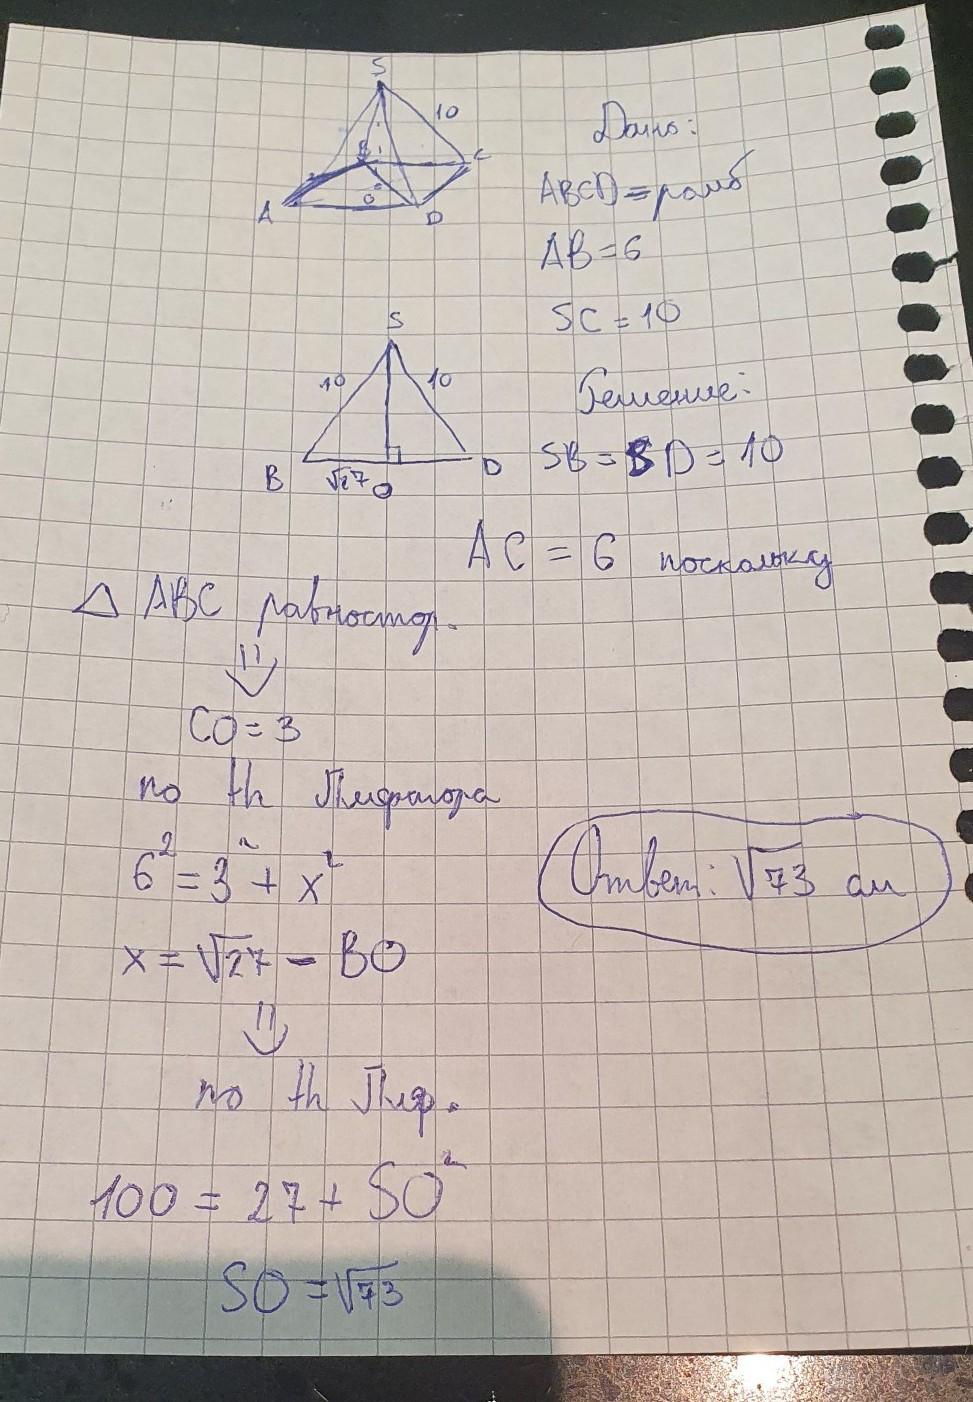 S
10
B
C
A
O
D
Дано:
ABCD = ромб
AB = 6
SC = 10
S
10
10
B
√27
O
D
Решение:
SB = SD = 10
AC = 6 поскольку
△ ABC равностор.
⇓
CO = 3
по th Пифагора
6² = 3² + x²
x = √27 - BO
⇓
по th Пиф.
100 = 27 + SO²
SO = √73
Ответ: √73 см